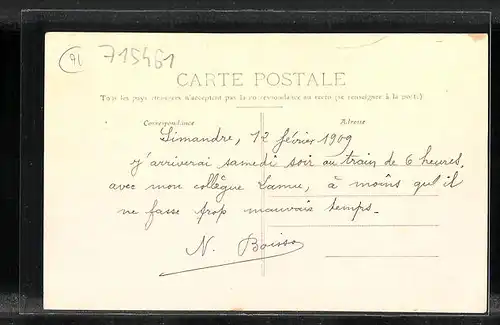 91
715461
CARTE POSTALE
Tous les pays étrangers n'acceptent pas la correspondance au recto (se renseigner à la poste).
Correspondance
Adresse
Simandre, 17 février 1909
J'arriverai samedi soir au train de 6 heures,
avec mon collègue Lamu, à moins qu'il
ne fasse trop mauvais temps.
N. Boisson